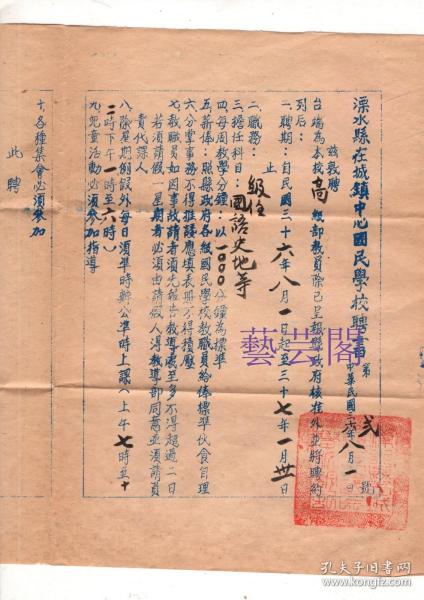 溧水縣在城鎮中心國民學校聘書
第弍號
中華民國三六年八月一日
茲敦聘
台端為本校高級部教員除已呈報縣政府核准外並將聘約
列后：
一、聘期：自民國三十六年八月一日起至三十七年一月卅一日
止
二、職務：級任
三、擔任科目：國語史地等
四、每周教學分鐘：以一000分鐘為標準
五、薪俸：照縣政府各級國民學校教職員給俸標準伙食自理
六、分掌事務不得推諉應填表冊不得積壓
七、教職員如因事故請者須先報告教導處至多不得超過二日
若須請假一星期者必須由請假人得教導部同意並須請員
責代課人
八、除星期例假外每日須準時辦公準時上課（上午七時至十
二時下午一時至六時）
九、兒童活動必須參加指導
十、各種集會必須參加
此聘
藝芸閣
孔夫子旧书网
www.kongfz.com